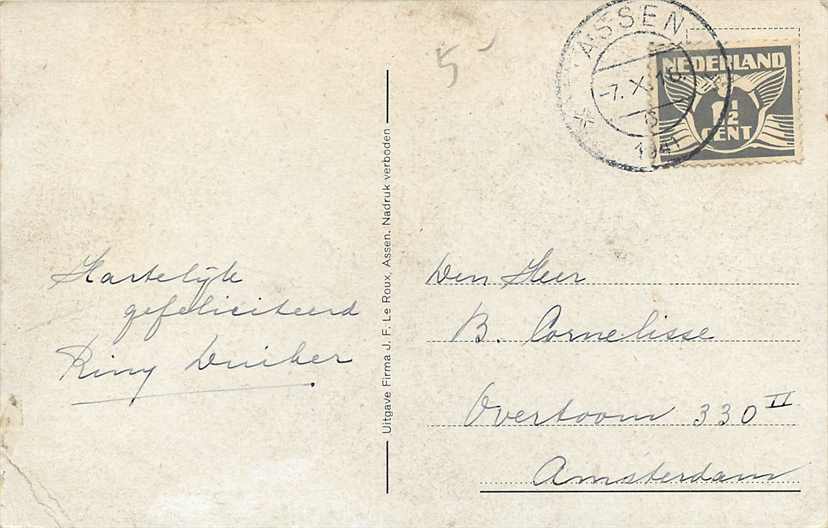 5-
ASSEN
-7.X.18
1941
NEDERLAND
1½
CENT
Hartelijk
gefeliciteerd
Riny Duiker
Uitgave Firma J. F. Le Roux, Assen. Nadruk verboden
Den Heer
B. Cornelisse
Overtoom 330 II
Amsterdam